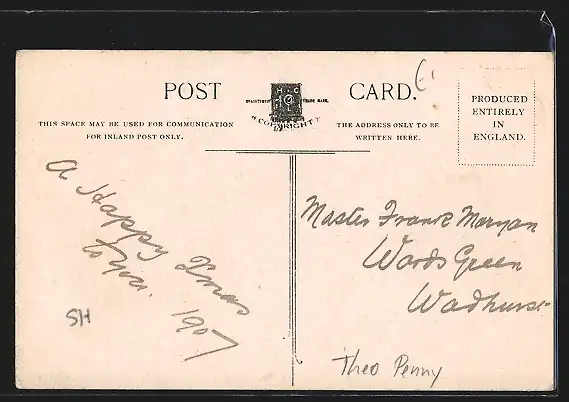 POST CARD.
H C
REGISTERED TRADE MARK.
"COPYRIGHT"
THIS SPACE MAY BE USED FOR COMMUNICATION
FOR INLAND POST ONLY.
THE ADDRESS ONLY TO BE
WRITTEN HERE.
PRODUCED
ENTIRELY
IN
ENGLAND.
A Happy Xmas
to You. 1907
SH
Master Frank Maryan
Words Green
Wadhurst
Theo Penny